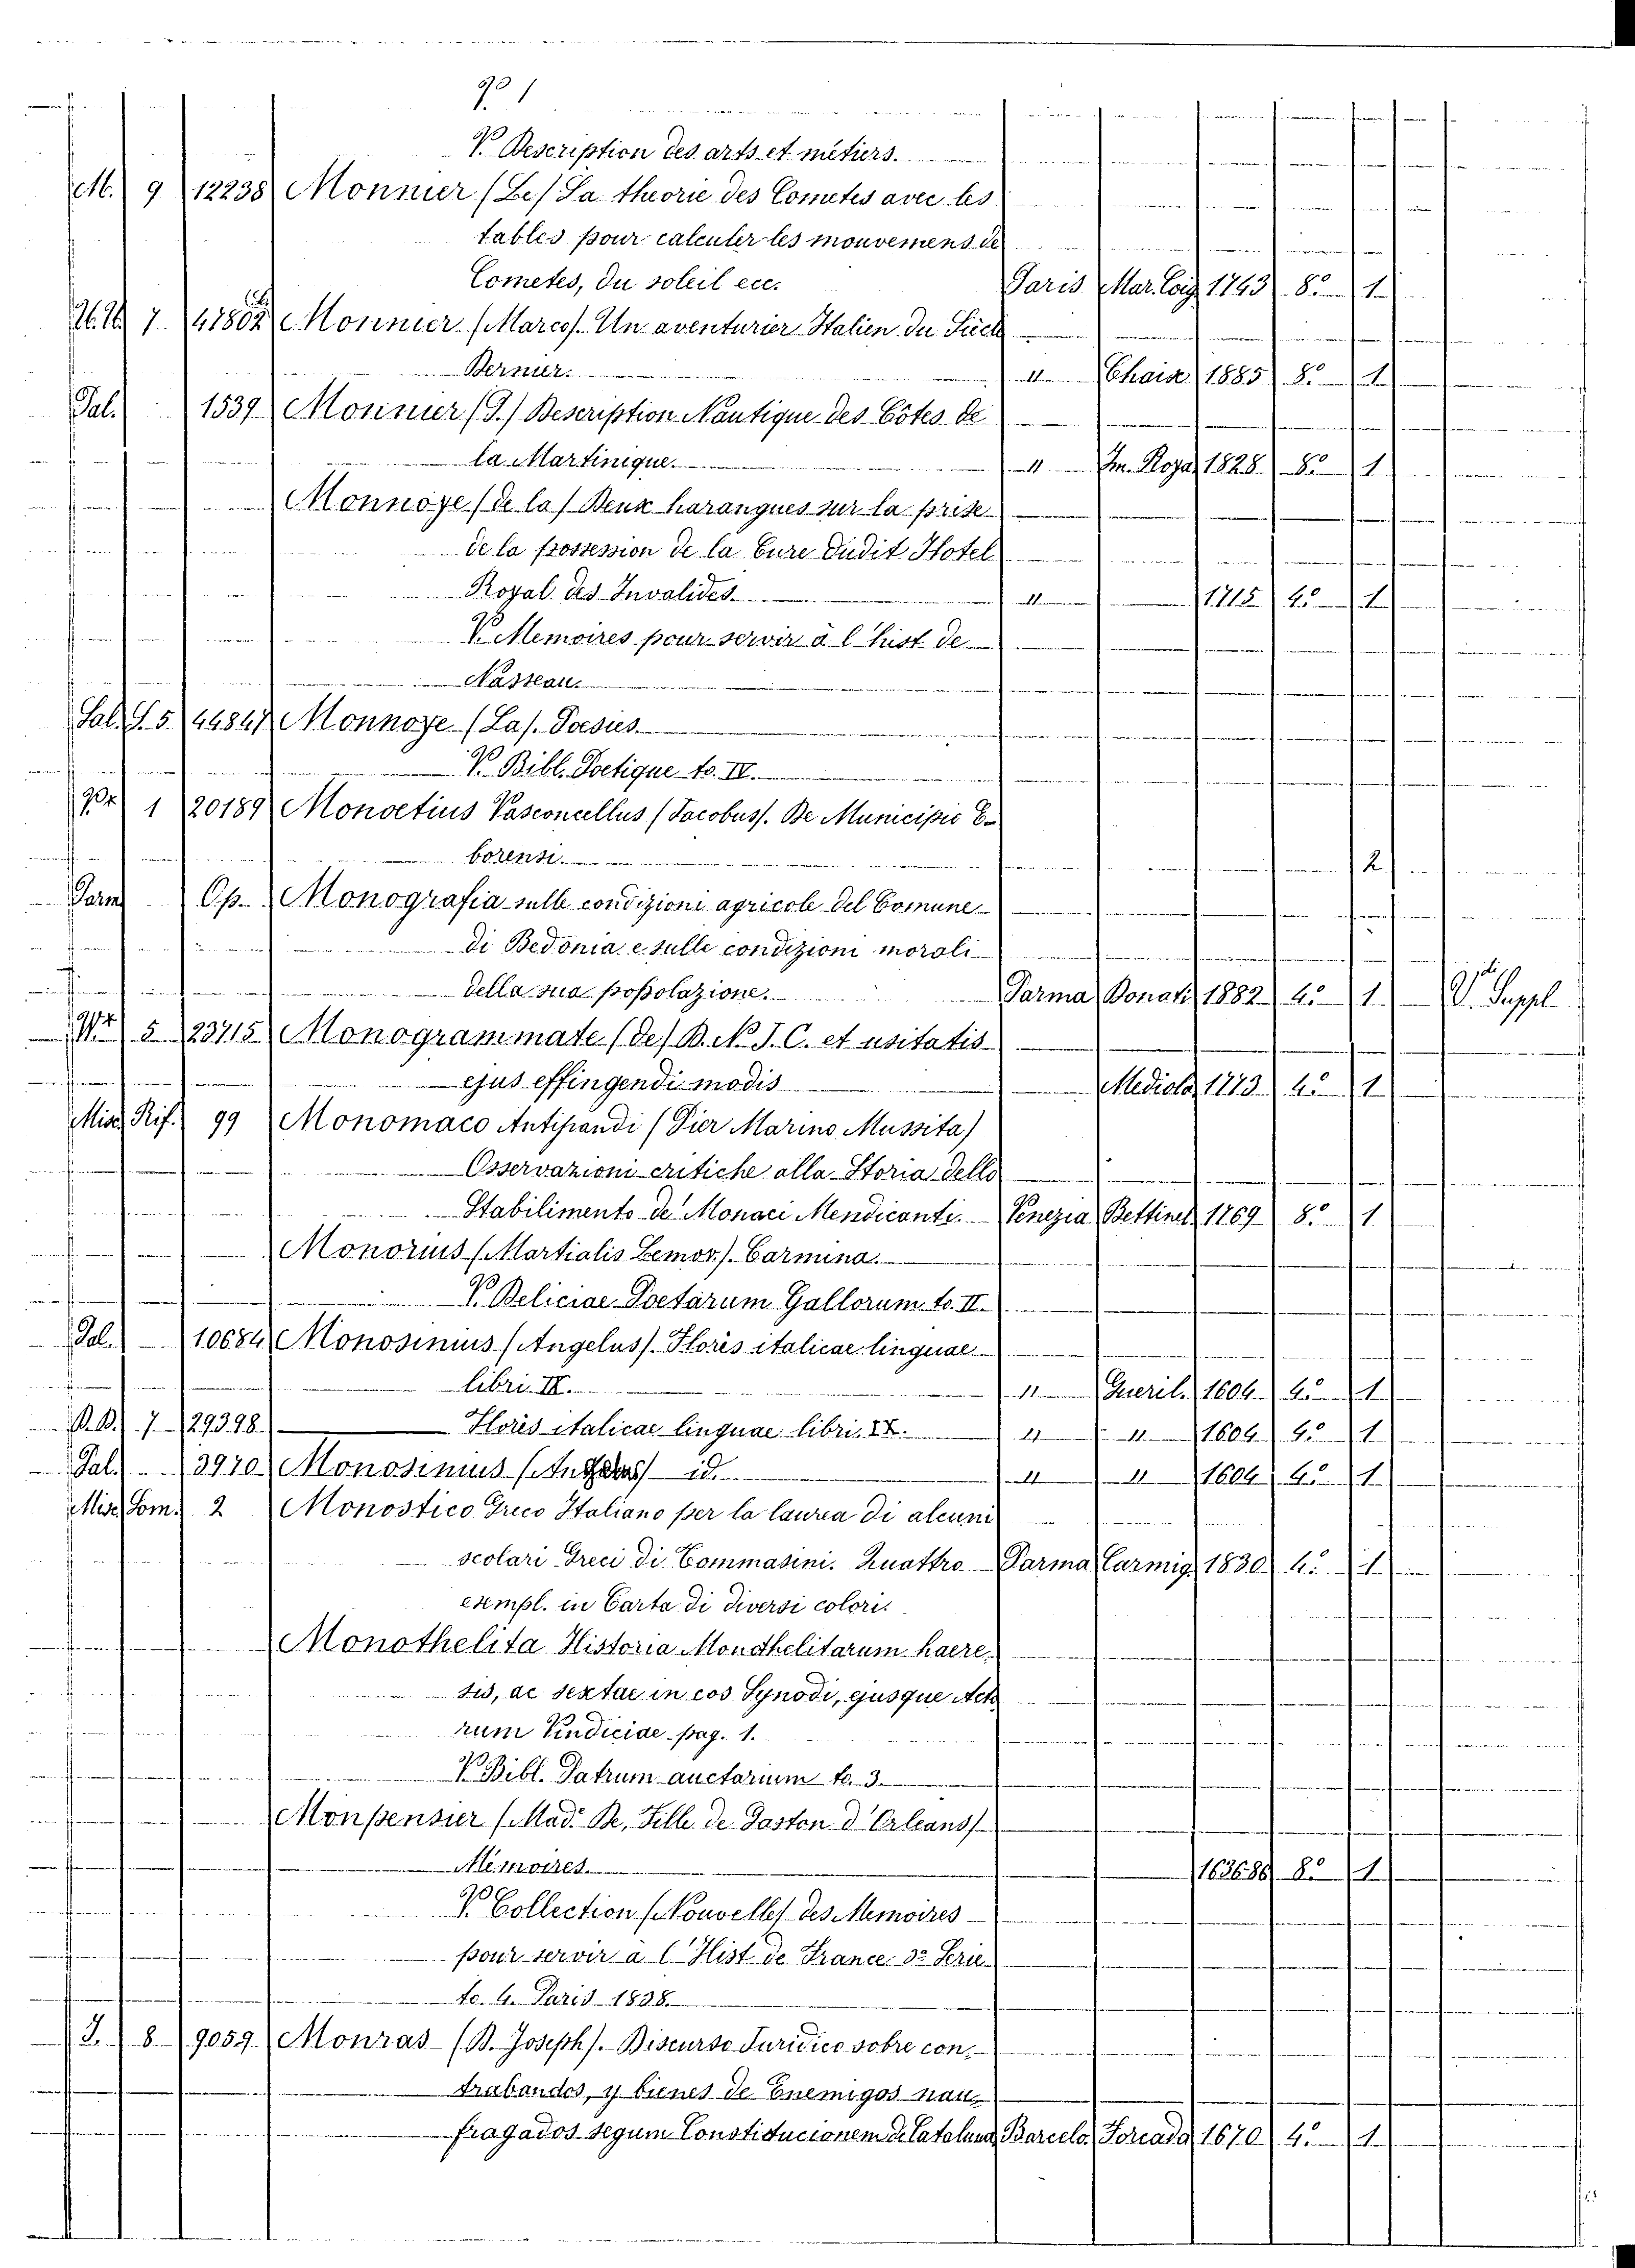 V. Description des arts et métiers.
M. 9 12238 Monnier (Le) La theorie des Cometes avec les
tables pour calculer les mouvemens de
Cometes, du soleil ecc. Paris Mar. Coig 1743 8.º 1
7 41802 Monnier (Marco). Un aventurier Italien du Siecle
Bernier. 11 Chaise 1885 8.º 1
Pal. 1539 Monnier (P.) Description Nautique des Côtes de
la Martinique. 11 Im. Roya 1828 8.º 1
Monnoye (de la) Deux harangues sur la prise
de la possession de la Cure dudit Hotel
Royal des Invalides. 11 1715 4.º 1
V. Memoires pour servir à l'hist de
Nasseau.
Sal. S. 5 44847 Monnoye (La). Poesies.
V. Bibl. Poetique to. IV.
1 20189 Monoetius Vasconcellus (Jacobus). De Municipio E-
borensi. 2
Parm Op. Monografia sulle condizioni agricole del Comune
di Bedonia e sulle condizioni morali
della sua popolazione. Parma Donati 1882 4.º 1 V. Suppl
5 23715 Monogrammate (de) D. N. J. C. et usitatis
ejus effingendi modis Mediola 1773 4.º 1
Misc. Rif. 99 Monomaco Antipiandi (Pier Marino Mussita)
Osservazioni critiche alla Storia dello
Stabilimento de' Monaci Mendicanti. Venezia Bettinel 1769 8.º 1
Monorius (Martialis Lemov.). Carmina.
V. Deliciae Poetarum Gallorum to. II.
Pal. 10684 Monosinius (Angelus). Floris italicae linguae
libri IX. 11 Gueril. 1604 4.º 1
P. B. 7 29398 Floris italicae linguae libri IX. 11 11 1604 4.º 1
Pal. 3970 Monosinius (Angelus) id. 11 11 1604 4.º 1
Misc. Tom. 2 Monostico Greco Italiano per la laurea di alcuni
scolari Greci di Tommasini. Quattro Parma Carmig 1830 4.º 1
esempl. in Carta di diversi colori.
Monothelita Historia Monothelitarum haere-
sis, ac sextae in eos Synodi, ejusque Acto
rum Vindiciae pag. 1.
V. Bibl. Patrum auctarium to. 3.
Monpensier (Mad.e De, Fille de Gaston d'Orleans)
Memoires. 163686 8.º 1
V. Collection (Nouvelle) des Memoires
pour servir a l'Hist de France 3.e Serie
to. 4. Paris 1838.
J. 8 9059 Monras (D. Joseph). Discurso Juridico sobre con-
trabandos, y bienes de Enemigos nau-
fragados segum Constitucionem de Cataluna Barcelo. Forcada 1670 4.º 1